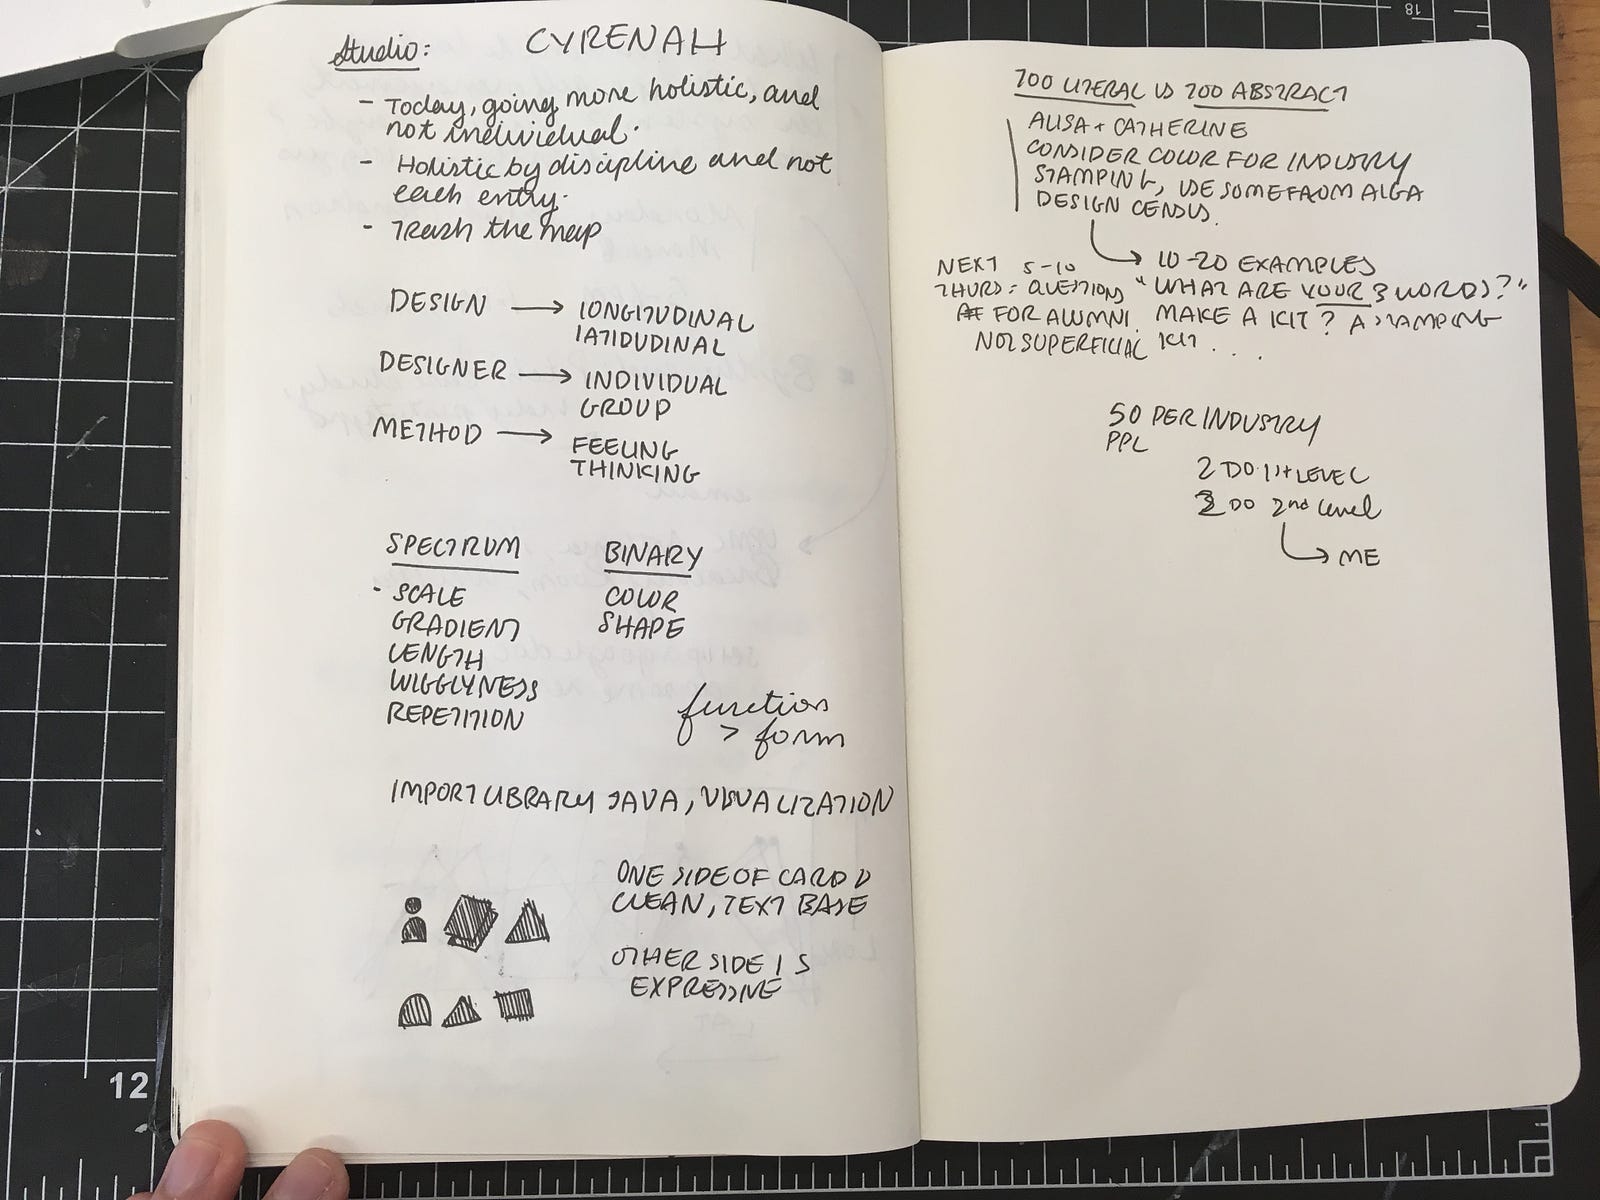 Studio: CYRENAH
- Today, going more holistic, and
not individual.
- Holistic by discipline and not
each entry.
- Trash the map
DESIGN → LONGITUDINAL
LATIDUDINAL
DESIGNER → INDIVIDUAL
GROUP
METHOD → FEELING
THINKING
SPECTRUM
- SCALE
GRADIENT
LENGTH
WIGGLYNESS
REPETITION
BINARY
COLOR
SHAPE
function
> form
IMPORT LIBRARY JAVA, VISUALIZATION
ONE SIDE OF CARD IS
CLEAN, TEXT BASE
OTHER SIDE IS
EXPRESSIVE
12
TOO LITERAL VS TOO ABSTRACT
ALISA + CATHERINE
CONSIDER COLOR FOR INDUSTRY
STAMPING, USE SOME FROM AIGA
DESIGN CENSUS.
→ 10-20 EXAMPLES
"WHAT ARE YOUR 3 WORDS?"
MAKE A KIT? A STAMPING
KIT . . .
NEXT 5-10
THURS: QUESTIONS
FOR ALUMNI.
NOT SUPERFICIAL
50 PER INDUSTRY
PPL
2 DO 1st LEVEL
DO 2nd level
→ ME
18